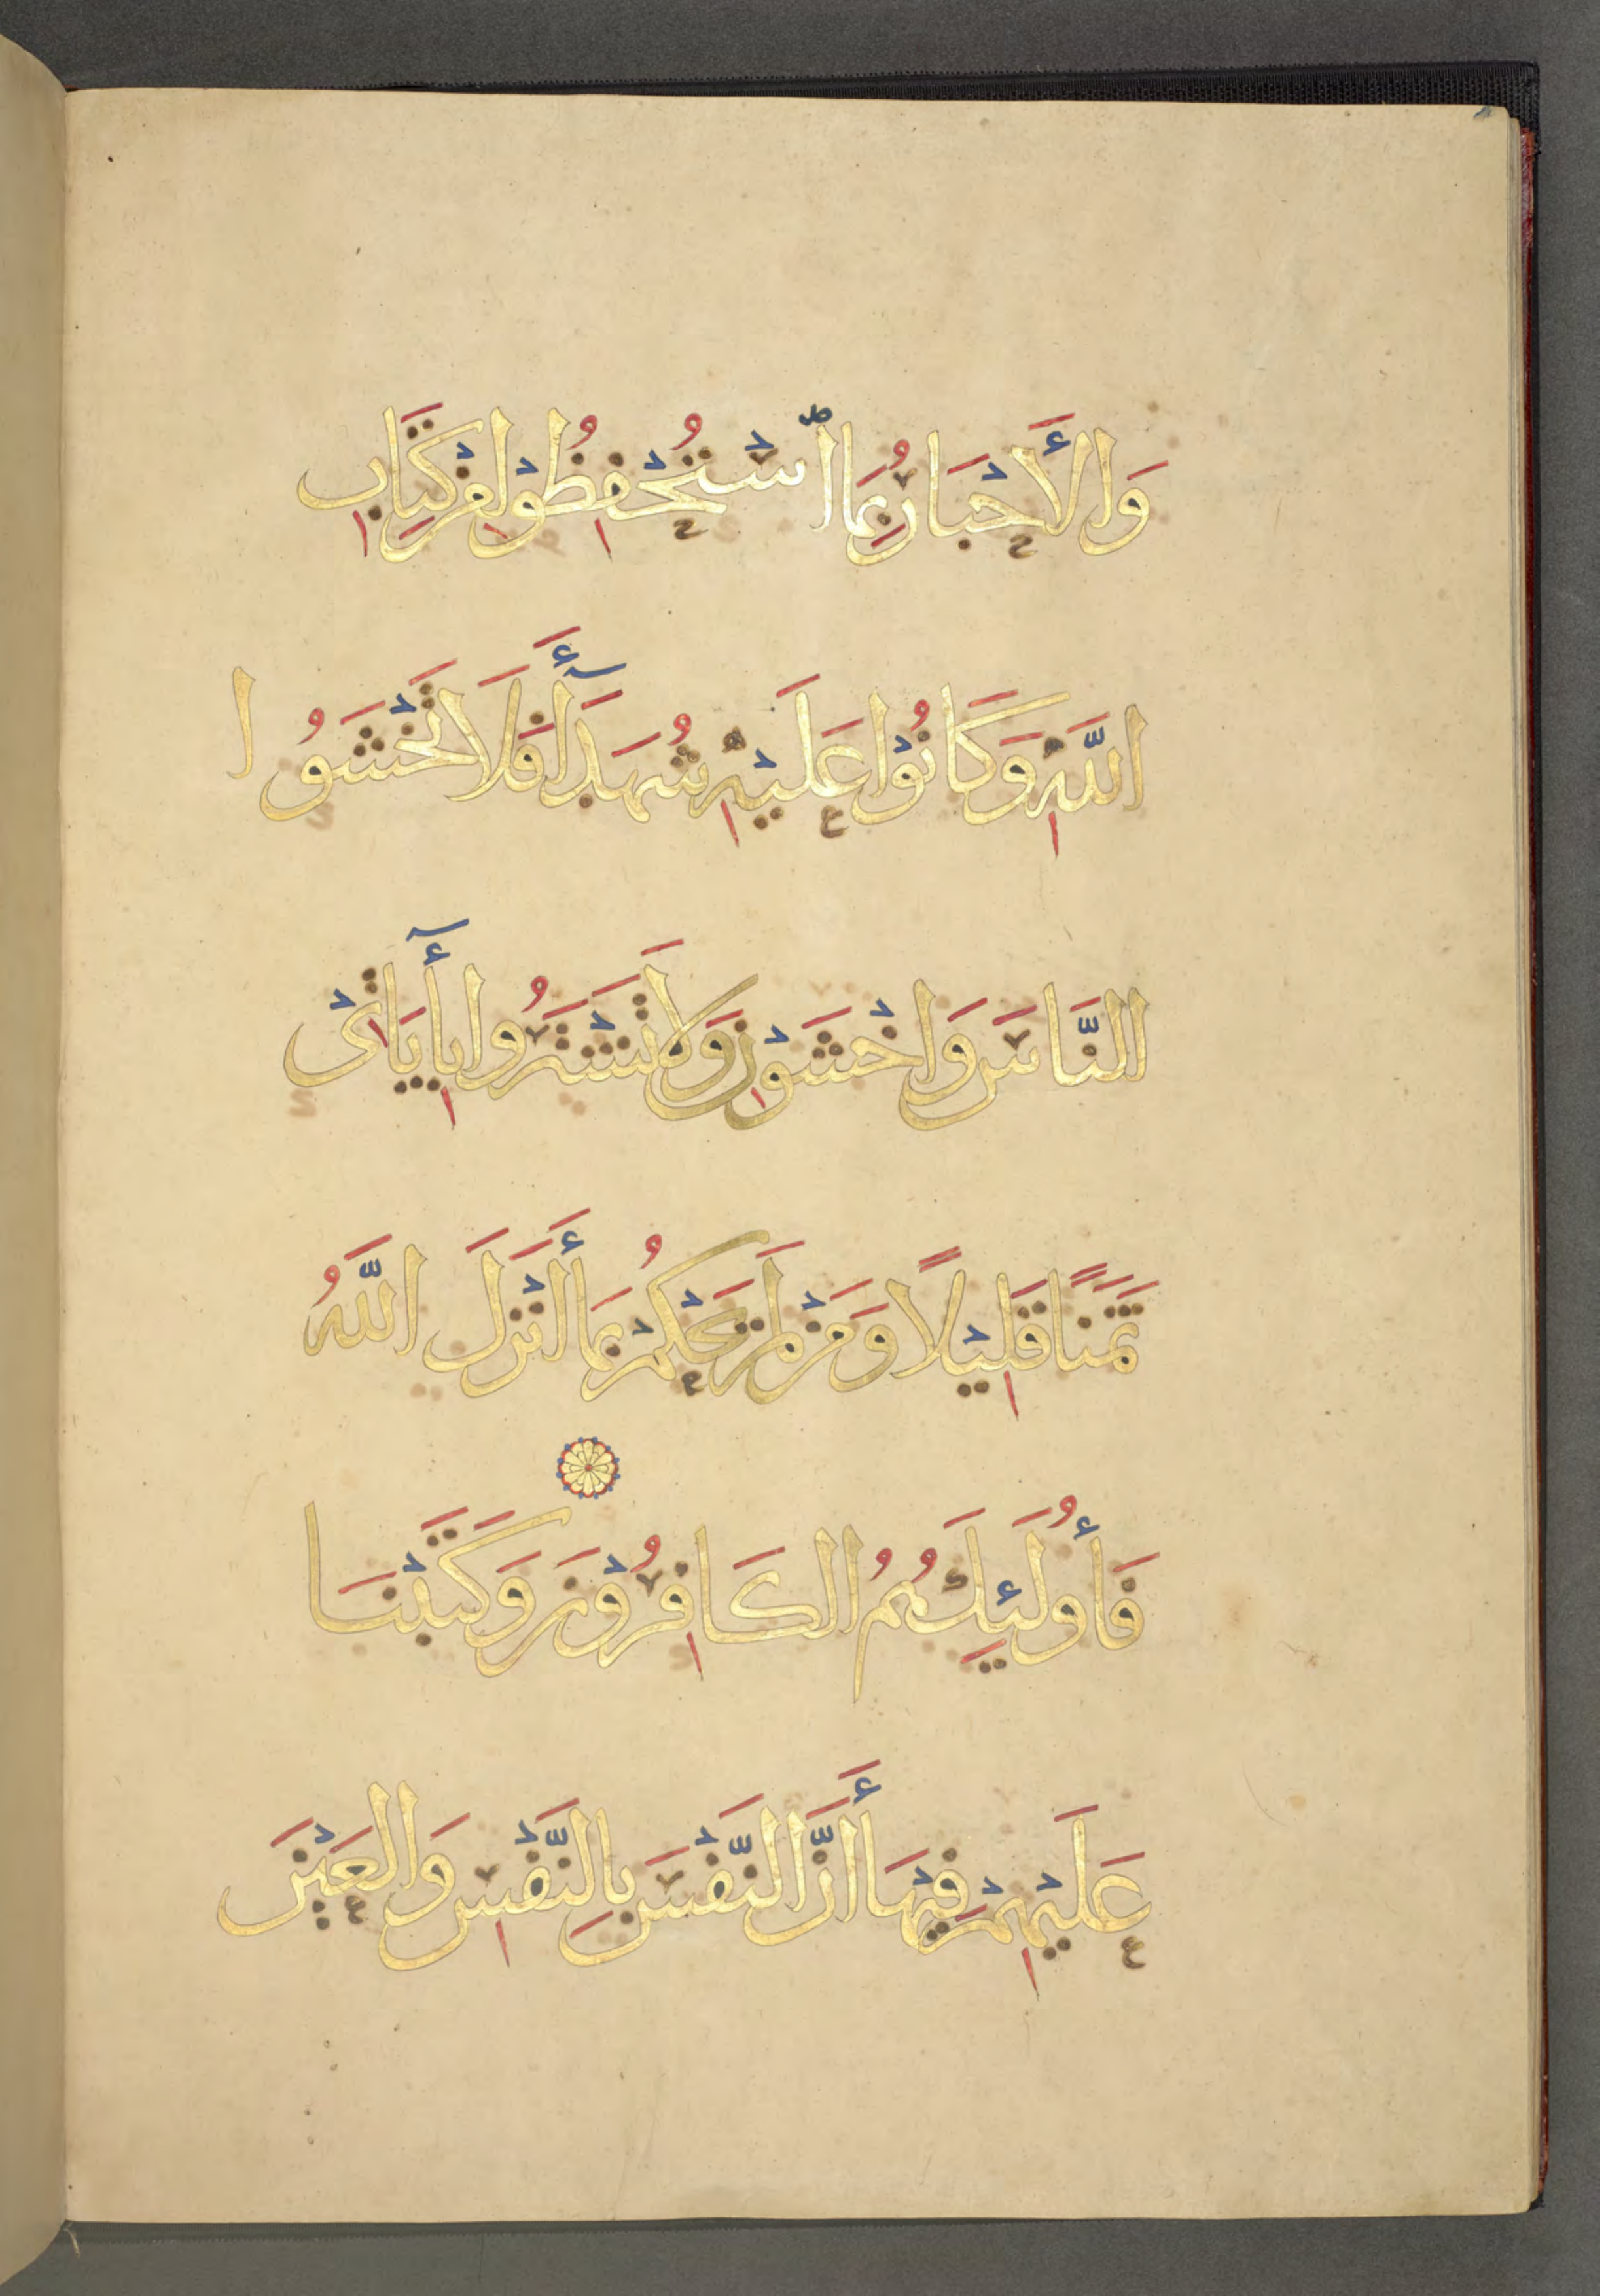 وَالأَحْبَارُ بِمَا ٱسْتُحْفِظُوْا مِنْ كِتَابِ
اللَّهِ وَكَانُوْا عَلَيْهِ شُهَدَآءَ فَلَا تَخْشَوُا
النَّاسَ وَاخْشَوْنِ وَلَا تَشْتَرُوا بِأَيَاتِىْ
ثَمَنًا قَلِيْلًا وَمَنْ لَمْ يَحْكُمْ بِمَا أَنْزَلَ اللَّهُ
فَأُولَئِكَ هُمُ الكَافِرُوْنَ وَكَتَبْنَا
عَلَيْهِمْ فِيْهَا أَنَّ النَّفْسَ بِالنَّفْسِ وَالعَيْنَ